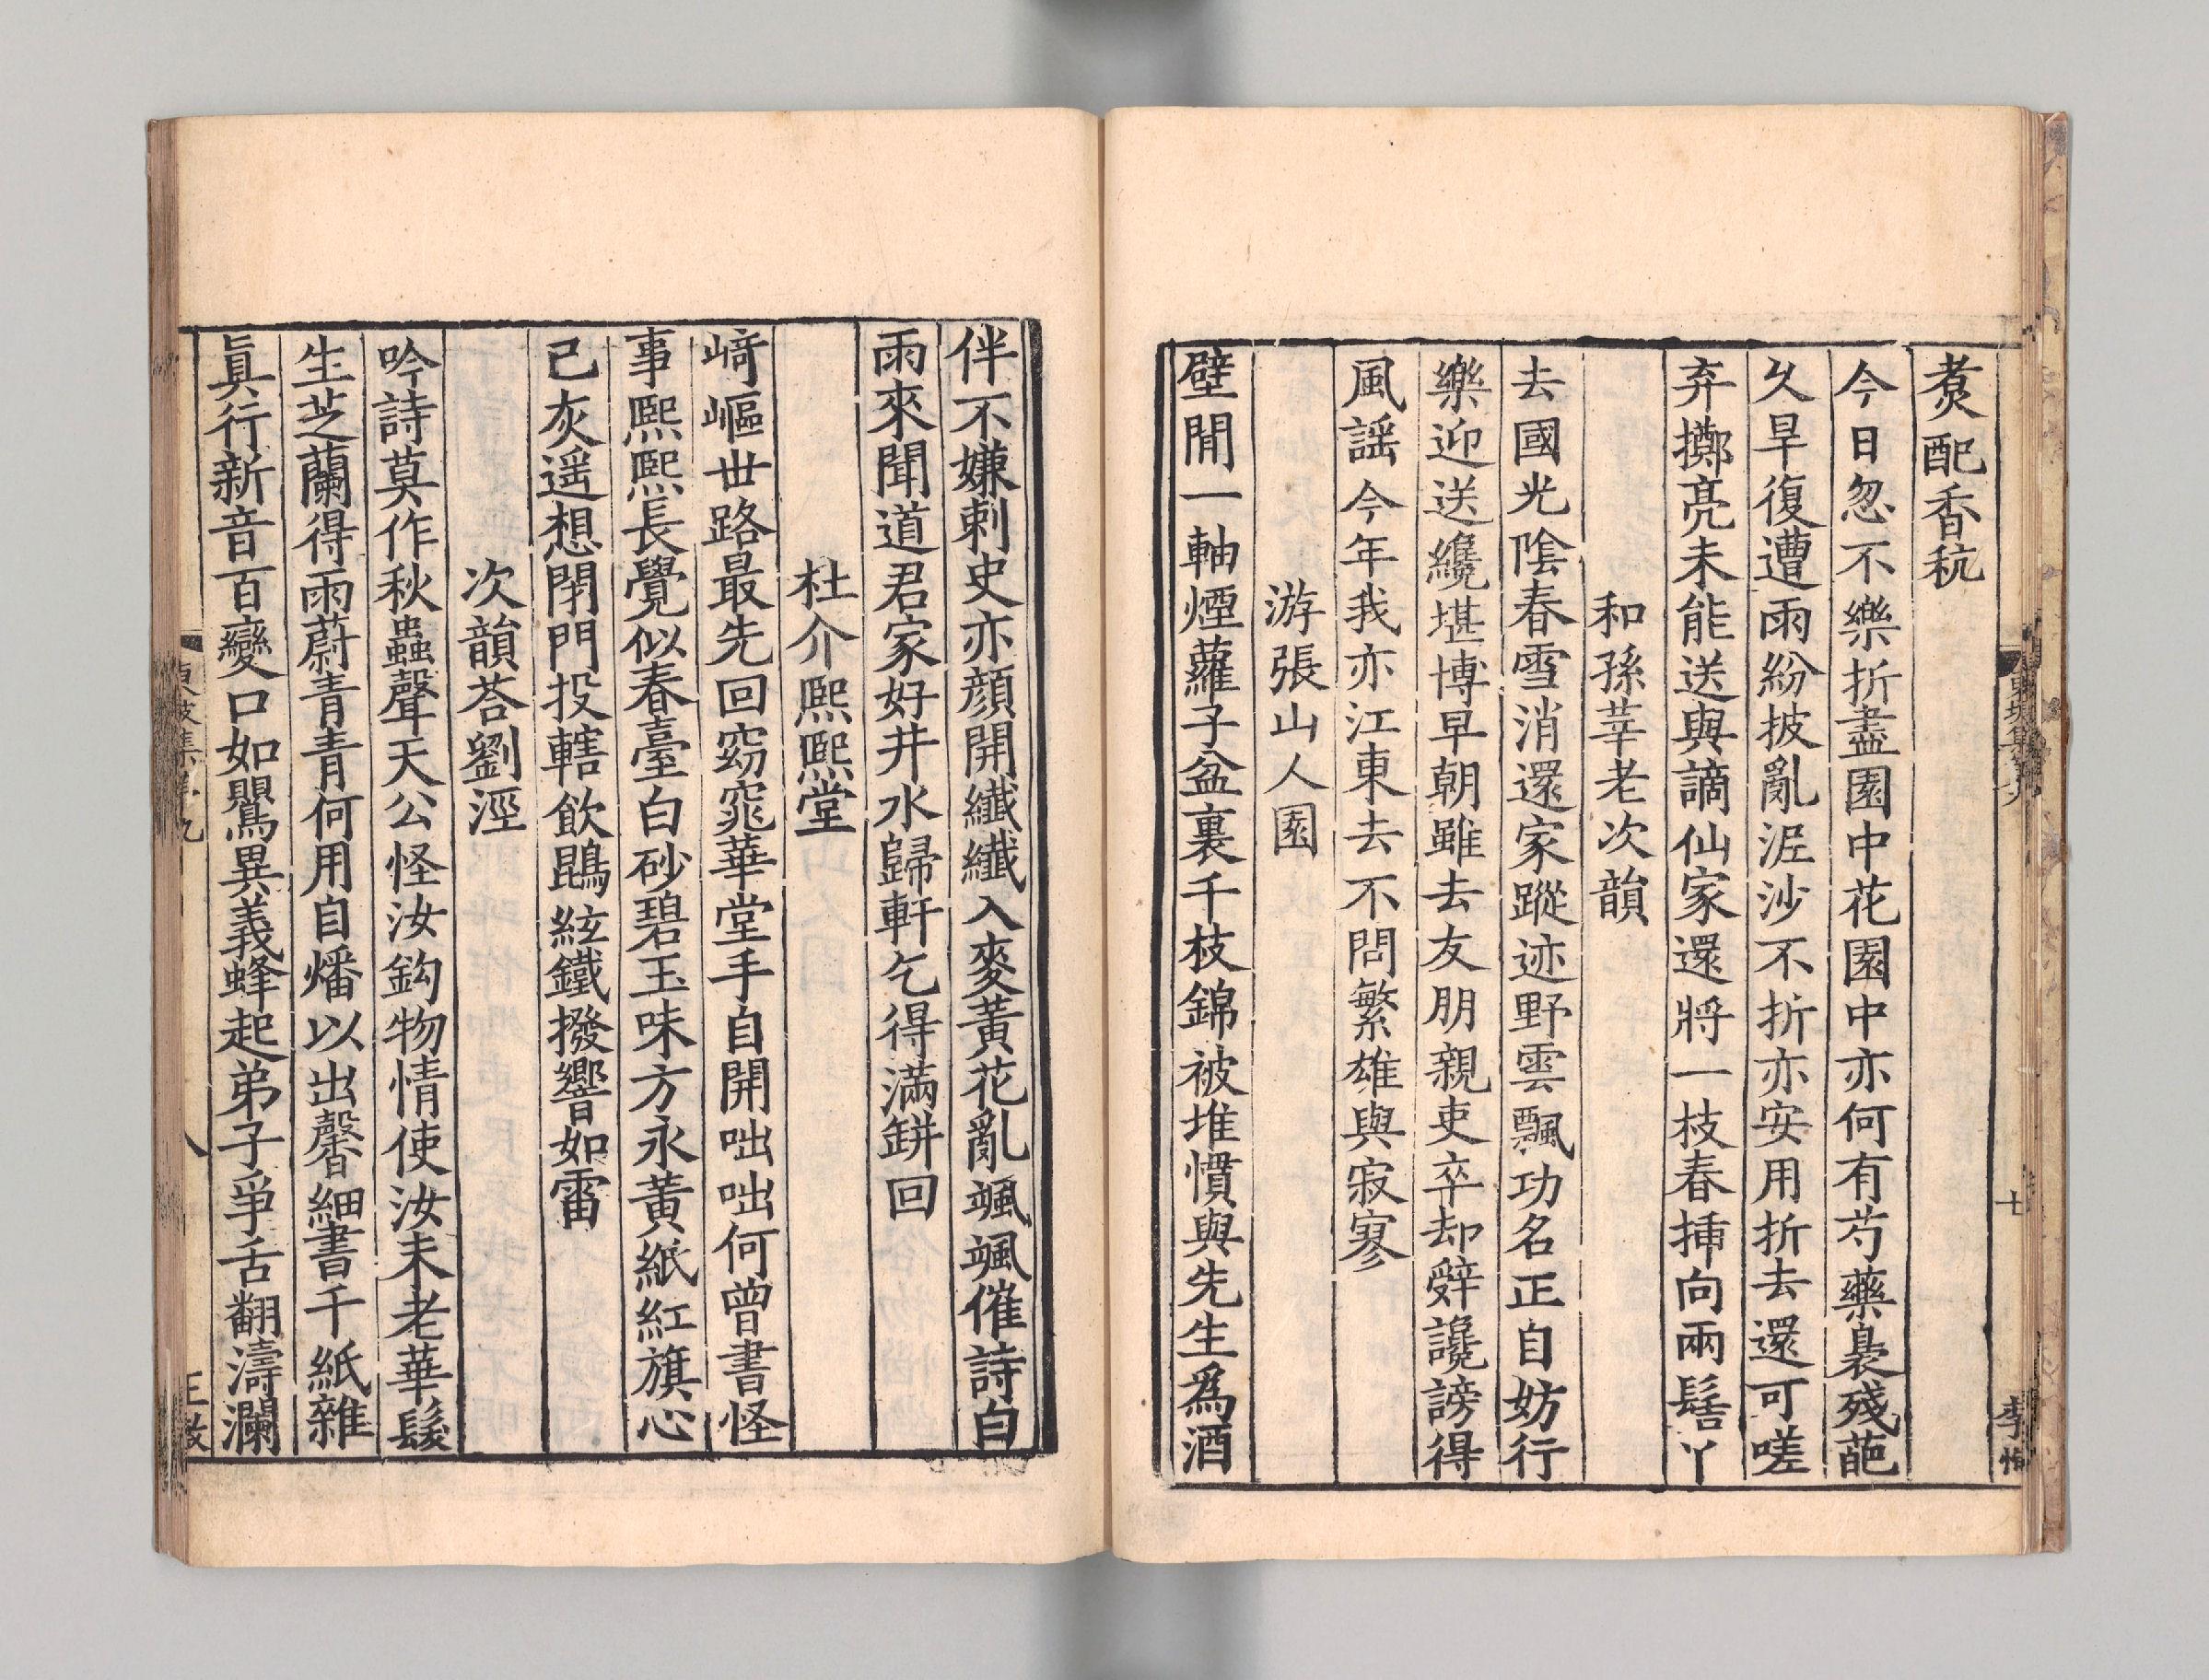 煑配香秔
今日忽不樂折盡園中花園中亦何有芍藥裊殘葩
久旱復遭雨紛披亂泥沙不折亦安用折去還可嗟
弃擲亮未能送與謫仙家還將一枝春揷向兩髻丫
和孫莘老次韻
去國光陰春雪消還家蹤迹野雲飄功名正自妨行
樂迎送纔堪博早朝雖去友朋親吏卒却辤讒謗得
風謡今年我亦江東去不問繁雄與寂寥
游張山人園
壁間一軸煙蘿子盆裏千枝錦被堆慣與先生爲酒
伴不嫌刺史亦顔開纖纖入麥黃花亂颯颯催詩白
雨來聞道君家好井水歸軒乞得滿缾回
杜介熙熙堂
崎嶇世路最先回窈窕華堂手自開咄咄何曾書怪
事熙熙長覺似春臺白砂碧玉味方永黃紙紅旗心
已灰遥想閉門投轄飲鵾絃鐵撥響如雷
次韻荅劉涇
吟詩莫作秋蟲聲天公怪汝鈎物情使汝未老華髮
生芝蘭得雨蔚青青何用自燔以出馨細書千紙雜
眞行新音百變口如鸎異義蜂起弟子爭舌翻濤瀾
東坡集
八
東坡集
七
李